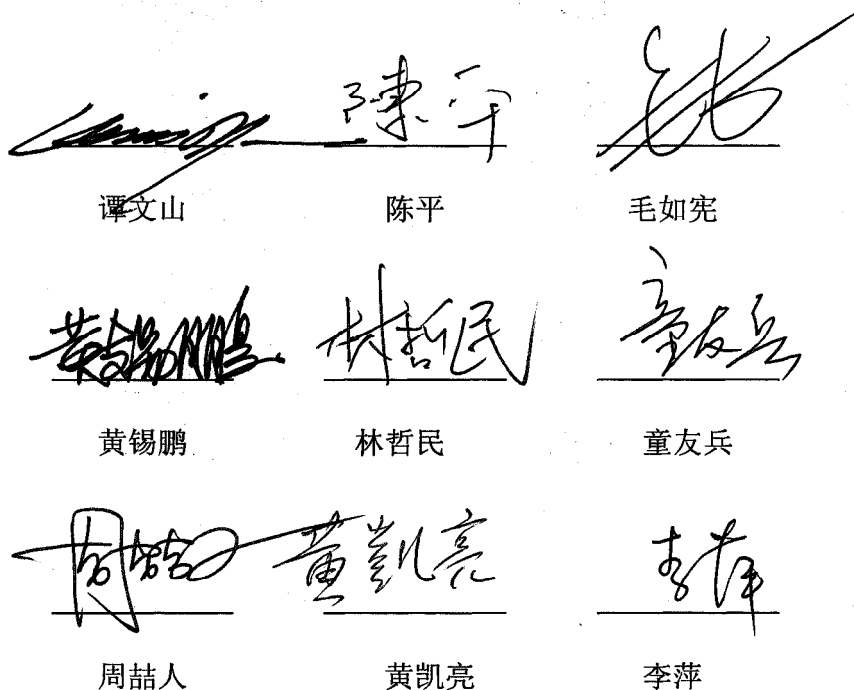 陳平
谭文山 陈平 毛如宪
黄锡鹏 林哲民 童友兵
黄锡鹏 林哲民 童友兵
周喆人 黄凱亮 李萍
周喆人 黄凯亮 李萍